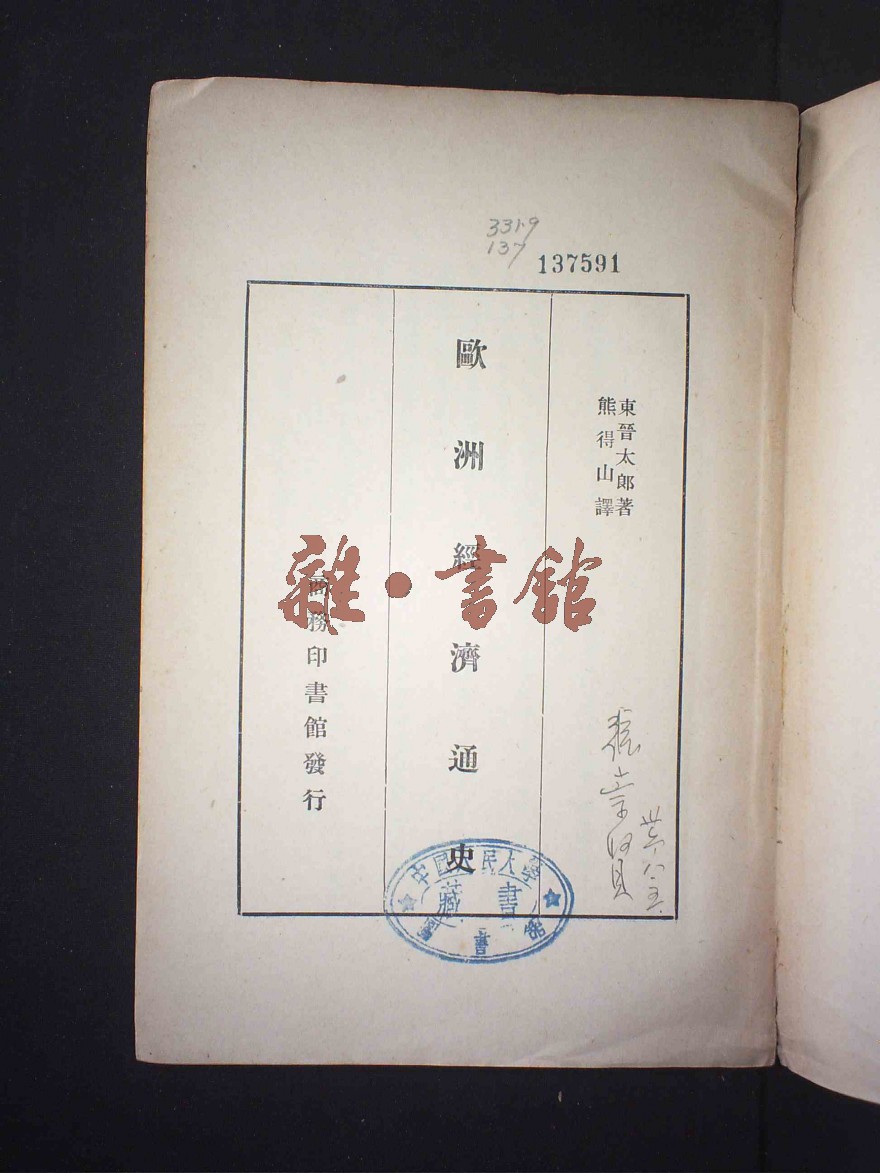 137
137591
東晉太郎著
熊得山譯
歐洲經濟通史
商務印書館發行
雜·書館
中國人民大學
圖書館
藏書